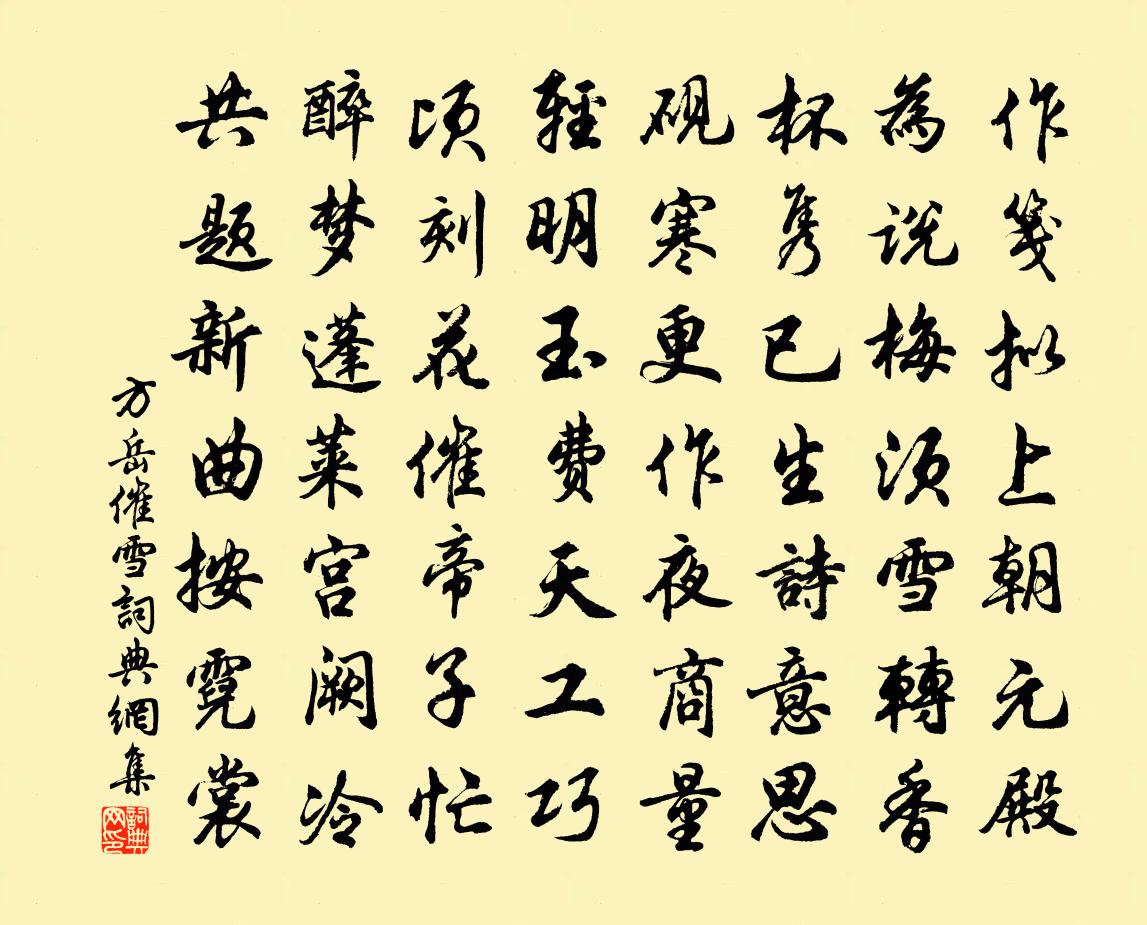 作箋拟上朝元殿
為说梅須雪轉香
杯隽已生詩意思
砚寒更作夜商量
輕明玉费天工巧
顷刻花催帝子忙
醉梦蓬莱宫阙冷
共题新曲按霓裳
方岳催雪詞典網集
詞典
网印